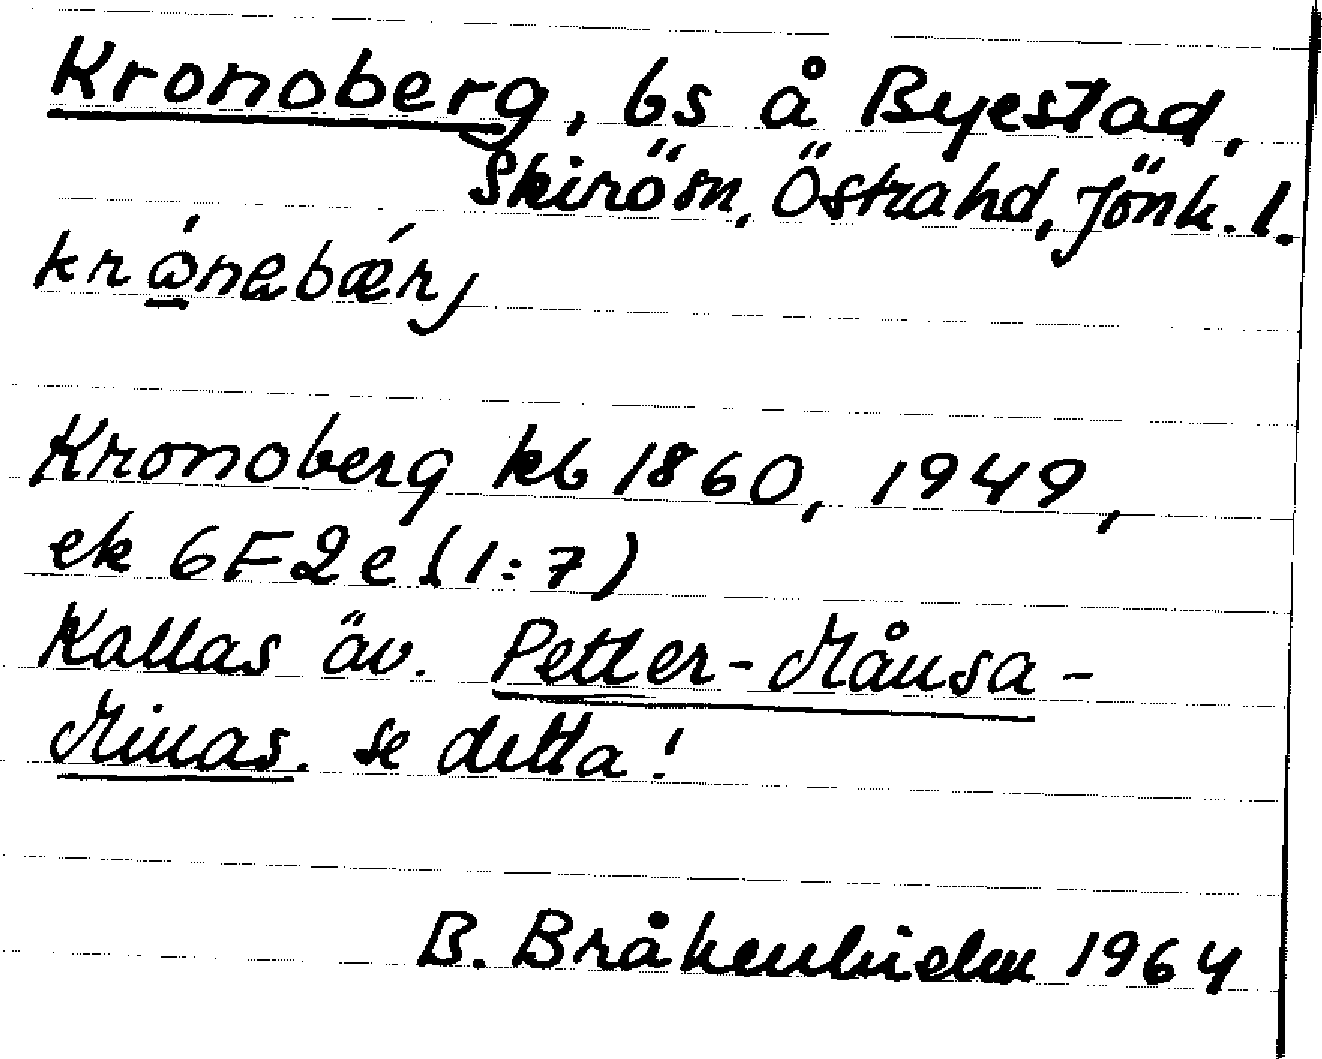 Kronoberg, bs å Byestad,
Skirö sn, Östra hd, Jönk. l.
krώ̲nəbǽrj
Kronoberg kb 1860, 1949,
ek 6F2e (1:7)
Kallas äv. Petter-Månsa-
Minas. se detta!
B. Bråkenhielm 1964